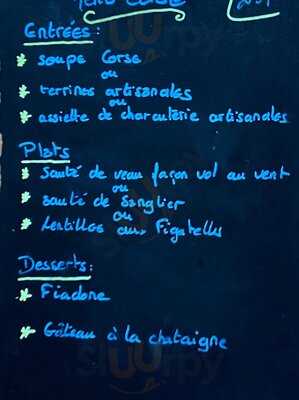 Entrées :
* soupe Corse
ou
* terrines artisanales
ou
* assiette de charcuterie artisanales
Plats
* Sauté de veau façon vol au vent
ou
* sauté de Sanglier
ou
* Lentilles aux Figatellu
Desserts :
* Fiadone
* Gâteau à la chataigne